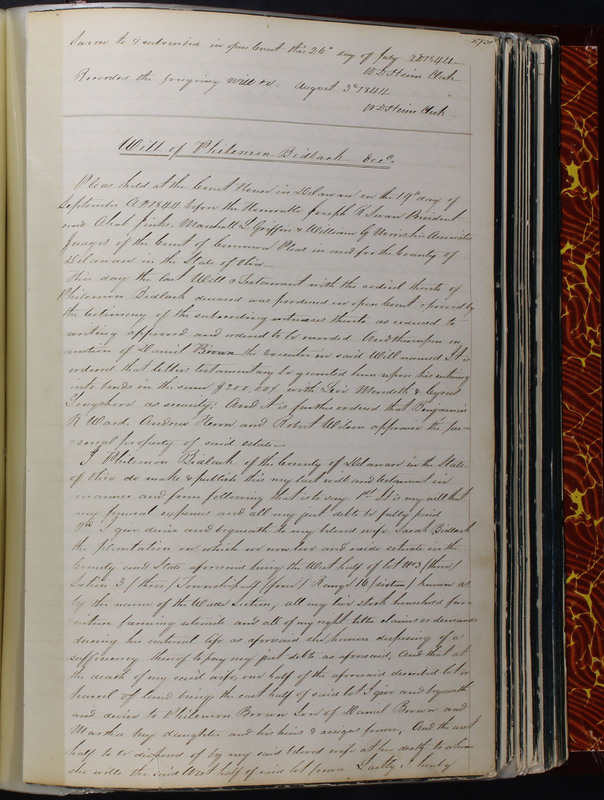 Sworn to & subscribed in open Court this 26th day of July AD 1844.
W D Heim Clerk
Recorded the foregoing Will &c. August 3d 1844
W D Heim Clerk
Will of Philemon Bidlack Decd.
Pleas held at the Court House in Delaware on the 19th day of
September AD 1844 before the Honorable Joseph R Swan President
and Ahab Jinks, Marshall L Griffin & William G Norris his Associate
Judges of the Court of Common Pleas in and for the County of
Delaware in the State of Ohio.
This day the last Will & Testament with the codicil thereto of
Philemon Bidlack deceased was produced in open Court & proved by
the testimony of the subscribing witnesses thereto as reduced to
writing approved and ordered to be recorded. And thereupon on
motion of Daniel Brown the Executor in said Will named It is
ordered that letters testamentary be granted him upon his entering
into bonds in the sum $200.00 with Levi Meredith & Cyrus
as security; And it is further ordered that Benjamin
R Ward, Andrew and Robert Wilson appraise the per-
-sonal property of said estate.
I Philemon Bidlack of the County of Delaware in the State
of Ohio do make & publish this my last will and testament in
manner and form following that is to say. 1st It is my will that
my funeral expenses and all my just debts be fully paid
2nd I give devise and bequeath to my beloved wife Sarah Bidlack
the plantation on which we now live and reside situate in the
County and State aforesaid being the West half of lot No 3 (three)
Section 3 (three) Township 4 (four) Range 16 (sixteen) known as
by the name of the Wade Section, all my live stock household fur-
niture farming utensils and all of my right title claims or demands
during her natural life as aforesaid she however disposing of a
sufficiency thereof to pay my just debts as aforesaid, And that at
the death of my said wife, one half of the aforesaid described lot or
parcel of land being the east half of said lot I give and bequeath
and devise to Philemon Brown Son of Daniel Brown and
Martha my daughter and his heirs & assigns forever, And the west
half to be disposed of by my said beloved wife at her death to whom
she wills the said West half of said lot forever. Lastly I hereby